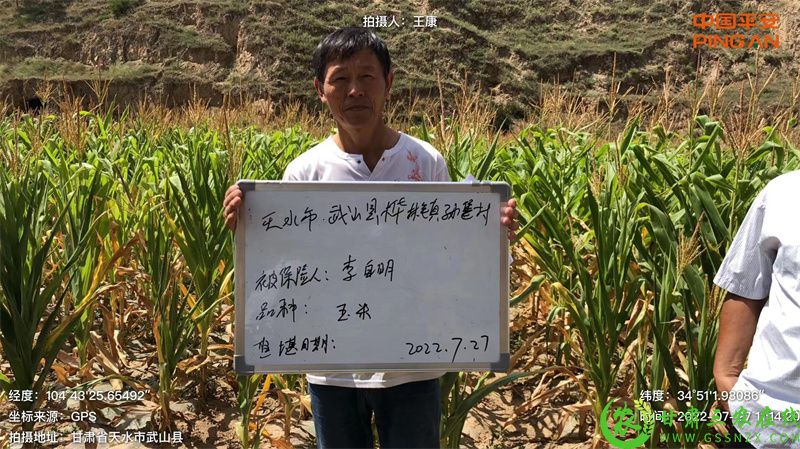 拍摄人：王康
中国平安
PING AN
天水市·武山县桦林镇孙堡村
被保险人：李自明
品种：玉米
查堪日期：2022.7.27
经度：104°43'25.65492"
坐标来源：GPS
拍摄地址：甘肃省天水市武山县
纬度：34°51'1.98086"
时间：2022-07-27
甘肃三农在线
WWW.GSSNZX.COM